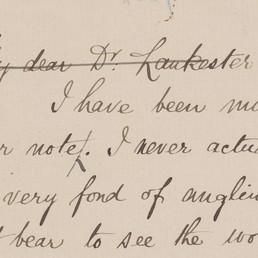 My dear Dr. Lankester
I have been m
r note. I never actu
very fond of anglin
t bear to see the wo